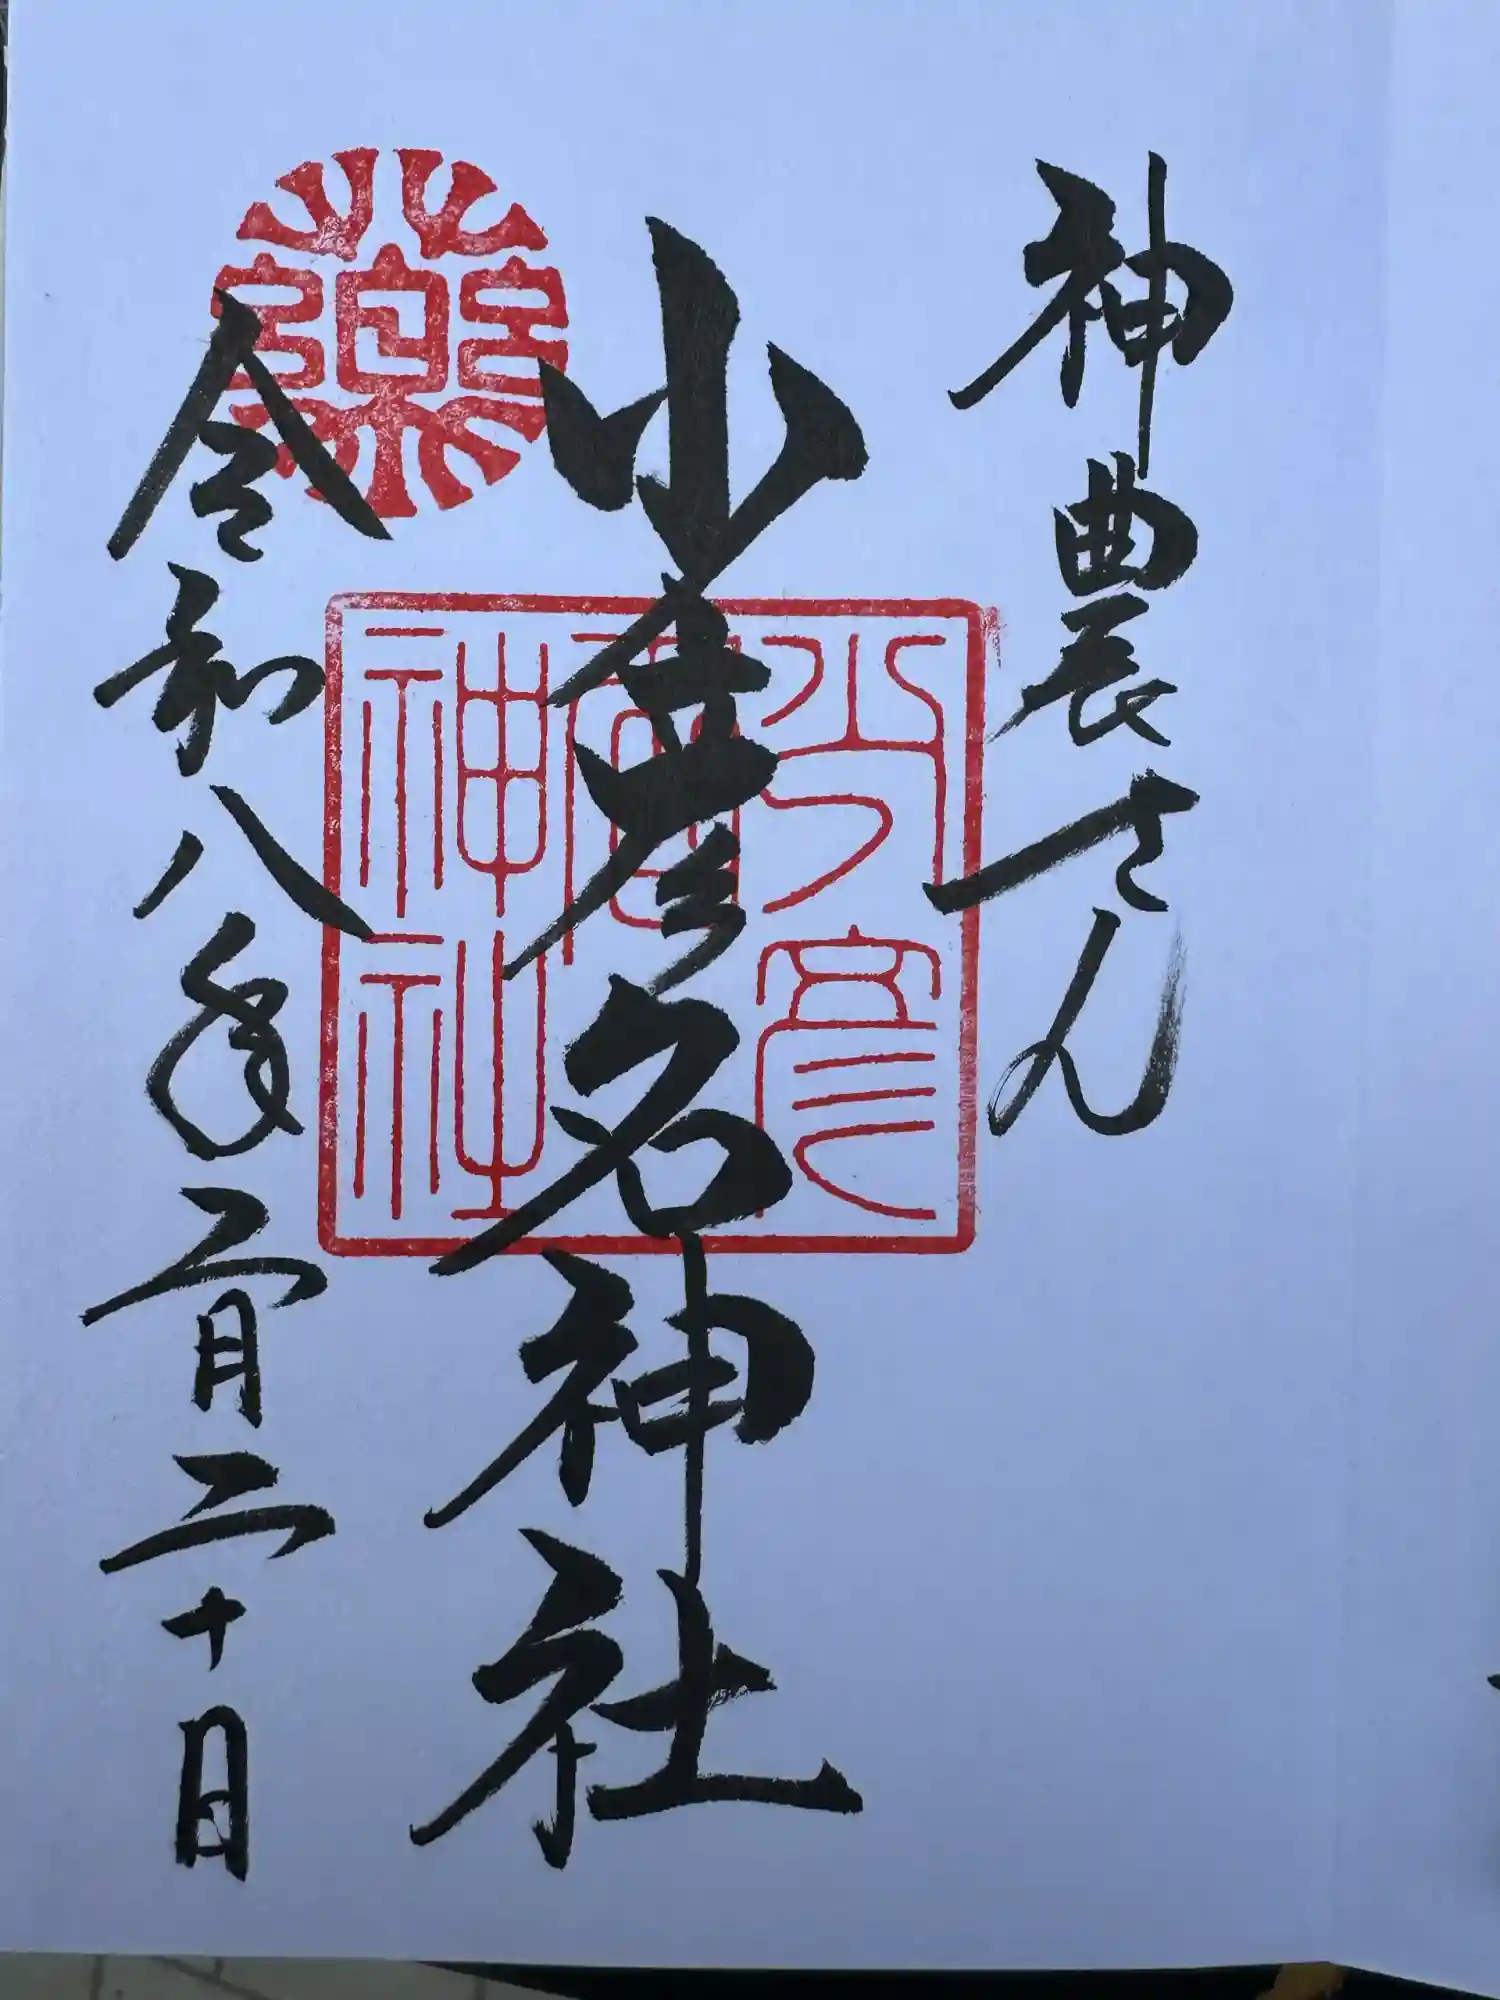 神農さん
少彦名神社
令和八年二月二十日
藥
少彦名神社